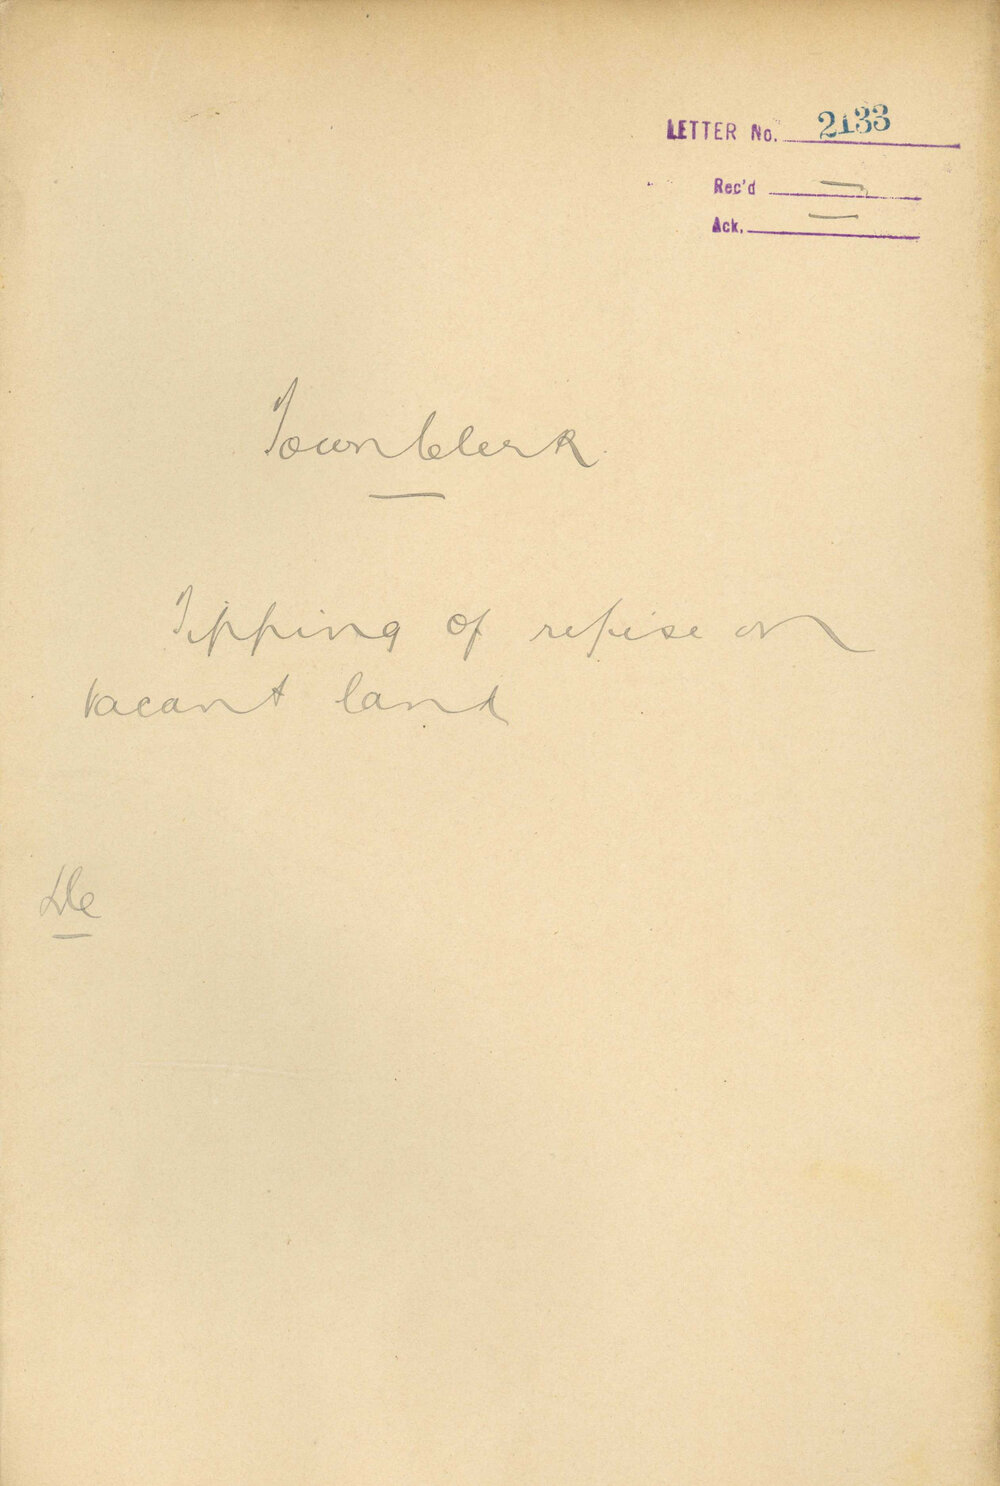 LETTER No. 2133
Rec'd —
Ack. —
Town Clerk
Tipping of refuse on
vacant land